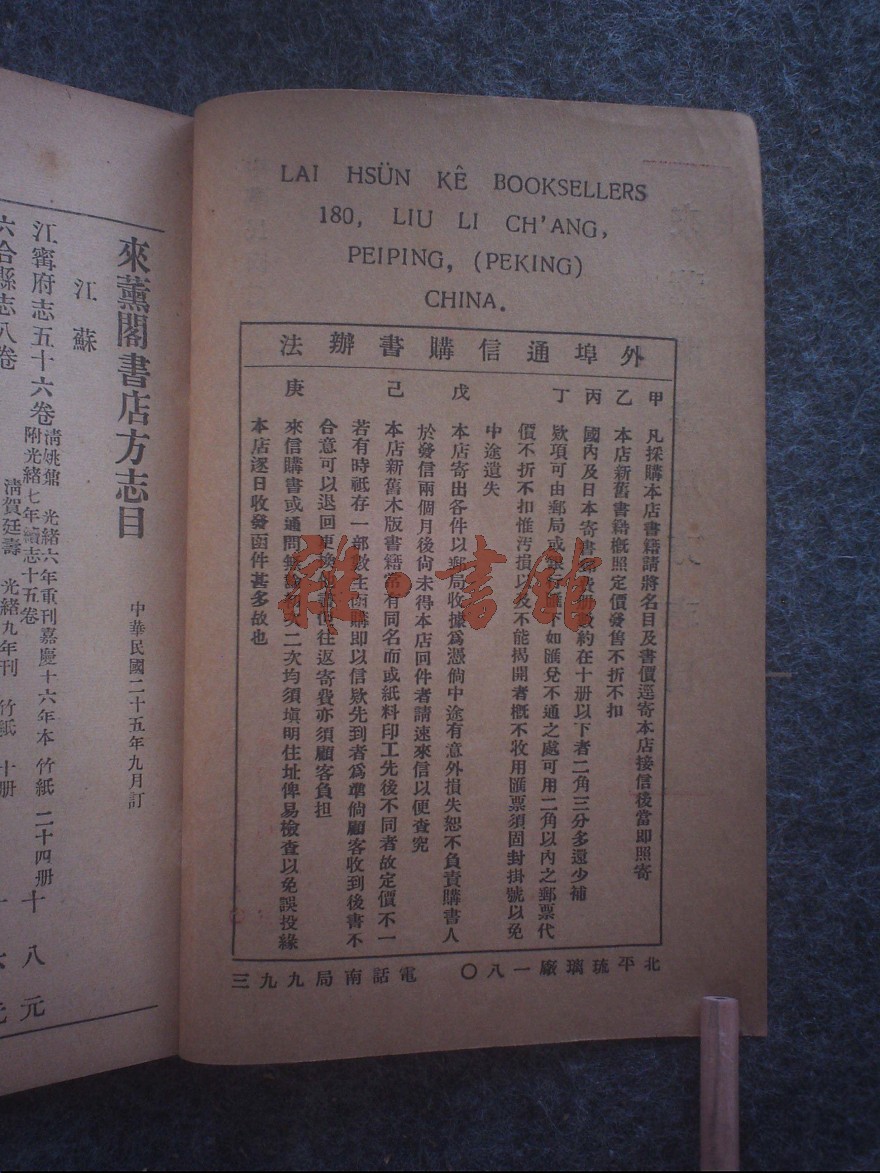 LAI HSÜN KÊ BOOKSELLERS
180, LIU LI CH'ANG,
PEIPING, (PEKING)
CHINA.
外埠通信購書辦法
甲 凡採購本店書籍請將名目及書價逕寄本店接信後當即照寄
乙 本店新舊書籍概照定價發售不折不扣
丙 國內及日本寄書郵費册數約在十册以下者二角三分多還少補
丁 欵項可由郵局或銀行匯下如匯兌不通之處可用二角以內之郵票代
價不折不扣惟汚損以及不能揭開者概不收用匯票須固封掛號以免
中途遺失
戊 本店寄出各件以郵局收據爲憑倘中途有意外損失恕不負責購書人
於發信兩個月後尙未得本店回件者請速來信以便查究
己 本店新舊木版書籍常有同名而或紙料印工先後不同者故定價不一
若有時祗存一部數主函購即以信欵先到者爲準倘顧客收到後書不
合意可以退回更換他書但往返寄費亦須顧客負担
庚 來信購書或通問無論初次二次均須塡明住址俾易檢查以免誤投緣
本店逐日收發函件甚多故也
北平琉璃廠一八〇 電話南局九九三
雜·書館
來薰閣書店方志目
中華民國二十五年九月訂
江蘇
江甯府志五十六卷 淸姚鼐 光緒六年重刊嘉慶十六年本 竹紙 二十四册 十八元
附光緒七年續志十五卷
六合縣志八卷 淸賀廷壽 光緒九年刊 竹紙 十册